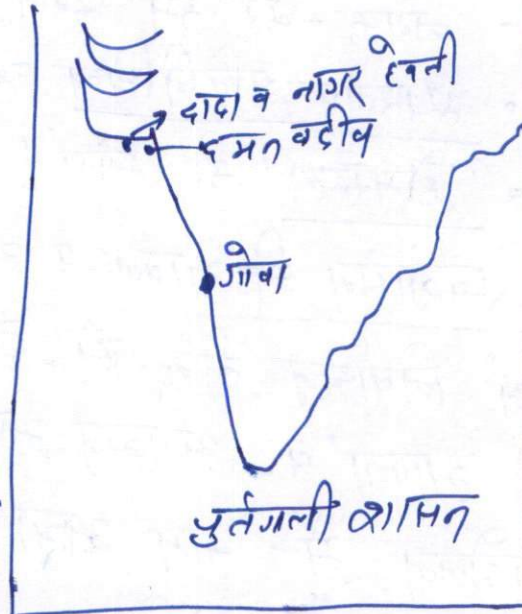 दादा व नागर हेवली
दमन व दीव
गोवा
पुर्तगाली शासन